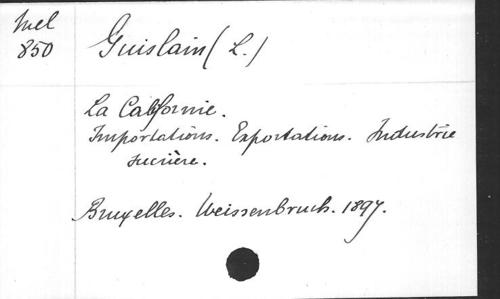 Mel
850
Guislain (L.)
La Californie.
Importations. Exportations. Industrie
sucrière.
Bruxelles. Weissenbruch. 1897.